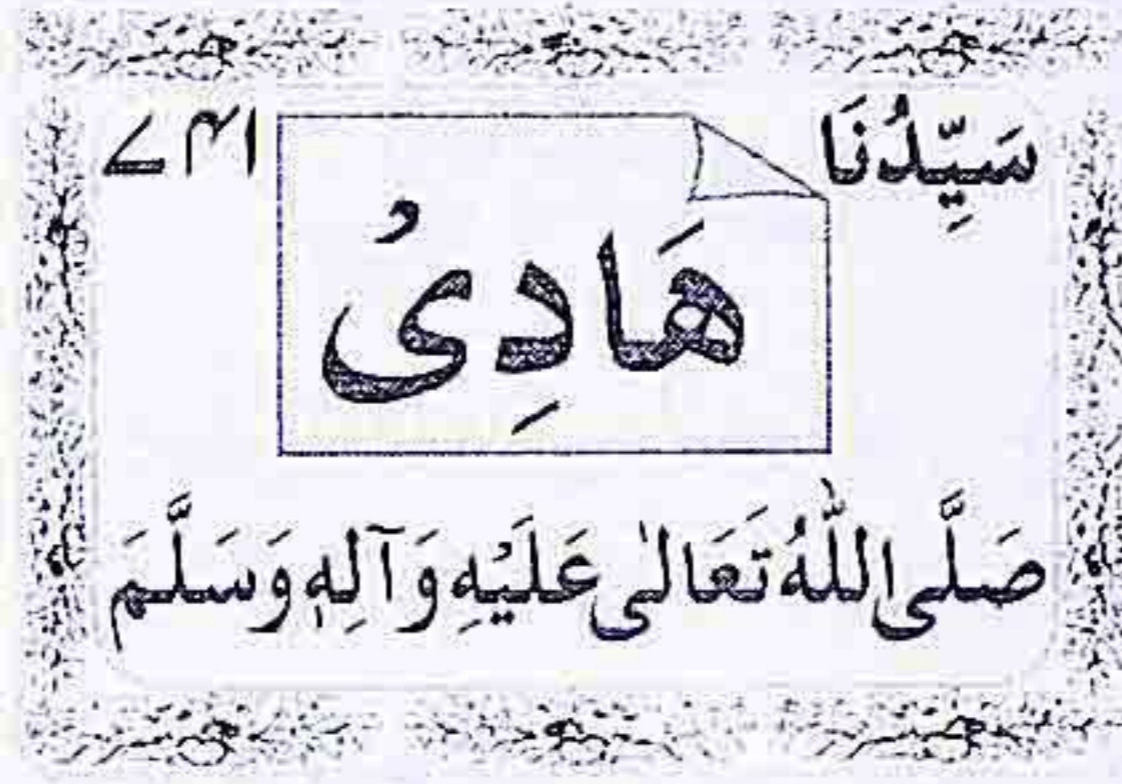 سَيِّدُنَا ۷۴۱
هَادِیُ
صَلَّی اللّٰهُ تَعَالٰی عَلَيْهِ وَآلِهٖ وَسَلَّمَ